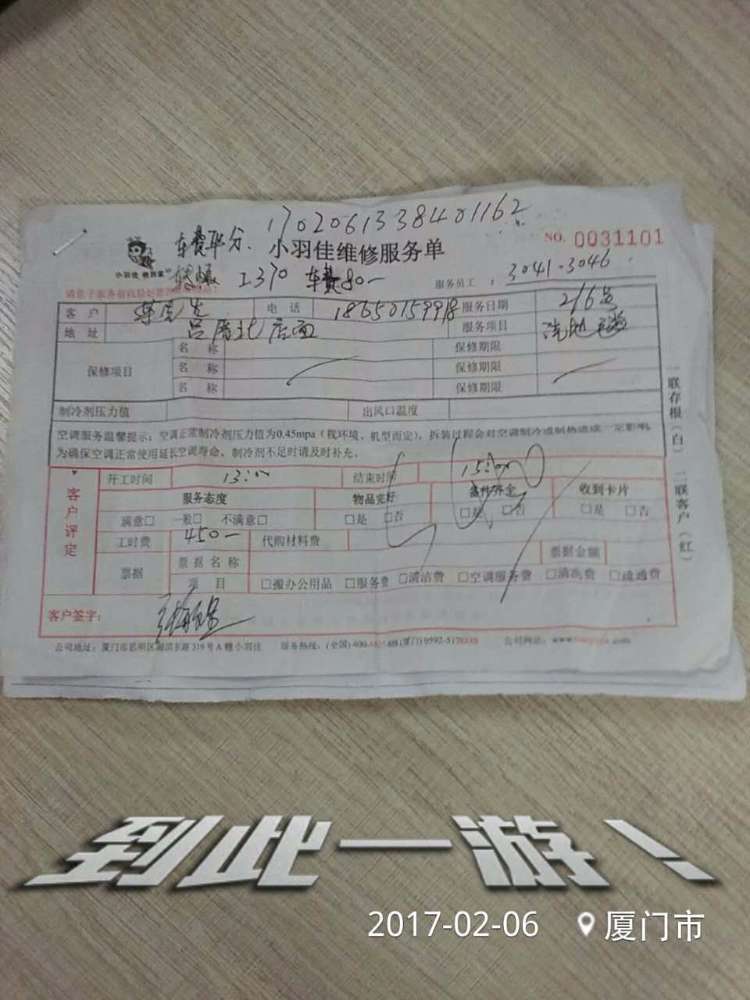 1702061338401162
小羽佳维修服务单
NO. 0031101
小羽佳
I370 车费80-
服务员工: 3041-3046
客户 电话 18650159918 服务日期 2/6号
地址 服务项目
保修项目 名称 保修期限
名称 保修期限
名称 保修期限
制冷剂压力值 出风口温度
空调服务温馨提示:空调正常制冷剂压力值为0.45mpa(视环境、机型而定),拆装过程会对空调制冷或制热造成一定影响,
为确保空调正常使用延长空调寿命,制冷剂不足时请及时补充。
开工时间 13:00 结束时间 15:00
客户评定
服务态度 物品完好 收到卡片
满意□ 一般□ 不满意□ □是 □否 □是 □否 □是 □否
工时费 450- 代购材料费
票据 票据名称 票据金额
项目 □搬办公用品 □服务费 □清洁费 □空调服务费 □清洗费 □疏通费
客户签字:
一联存根(白) 二联客户(红)
到此一游!
2017-02-06 厦门市